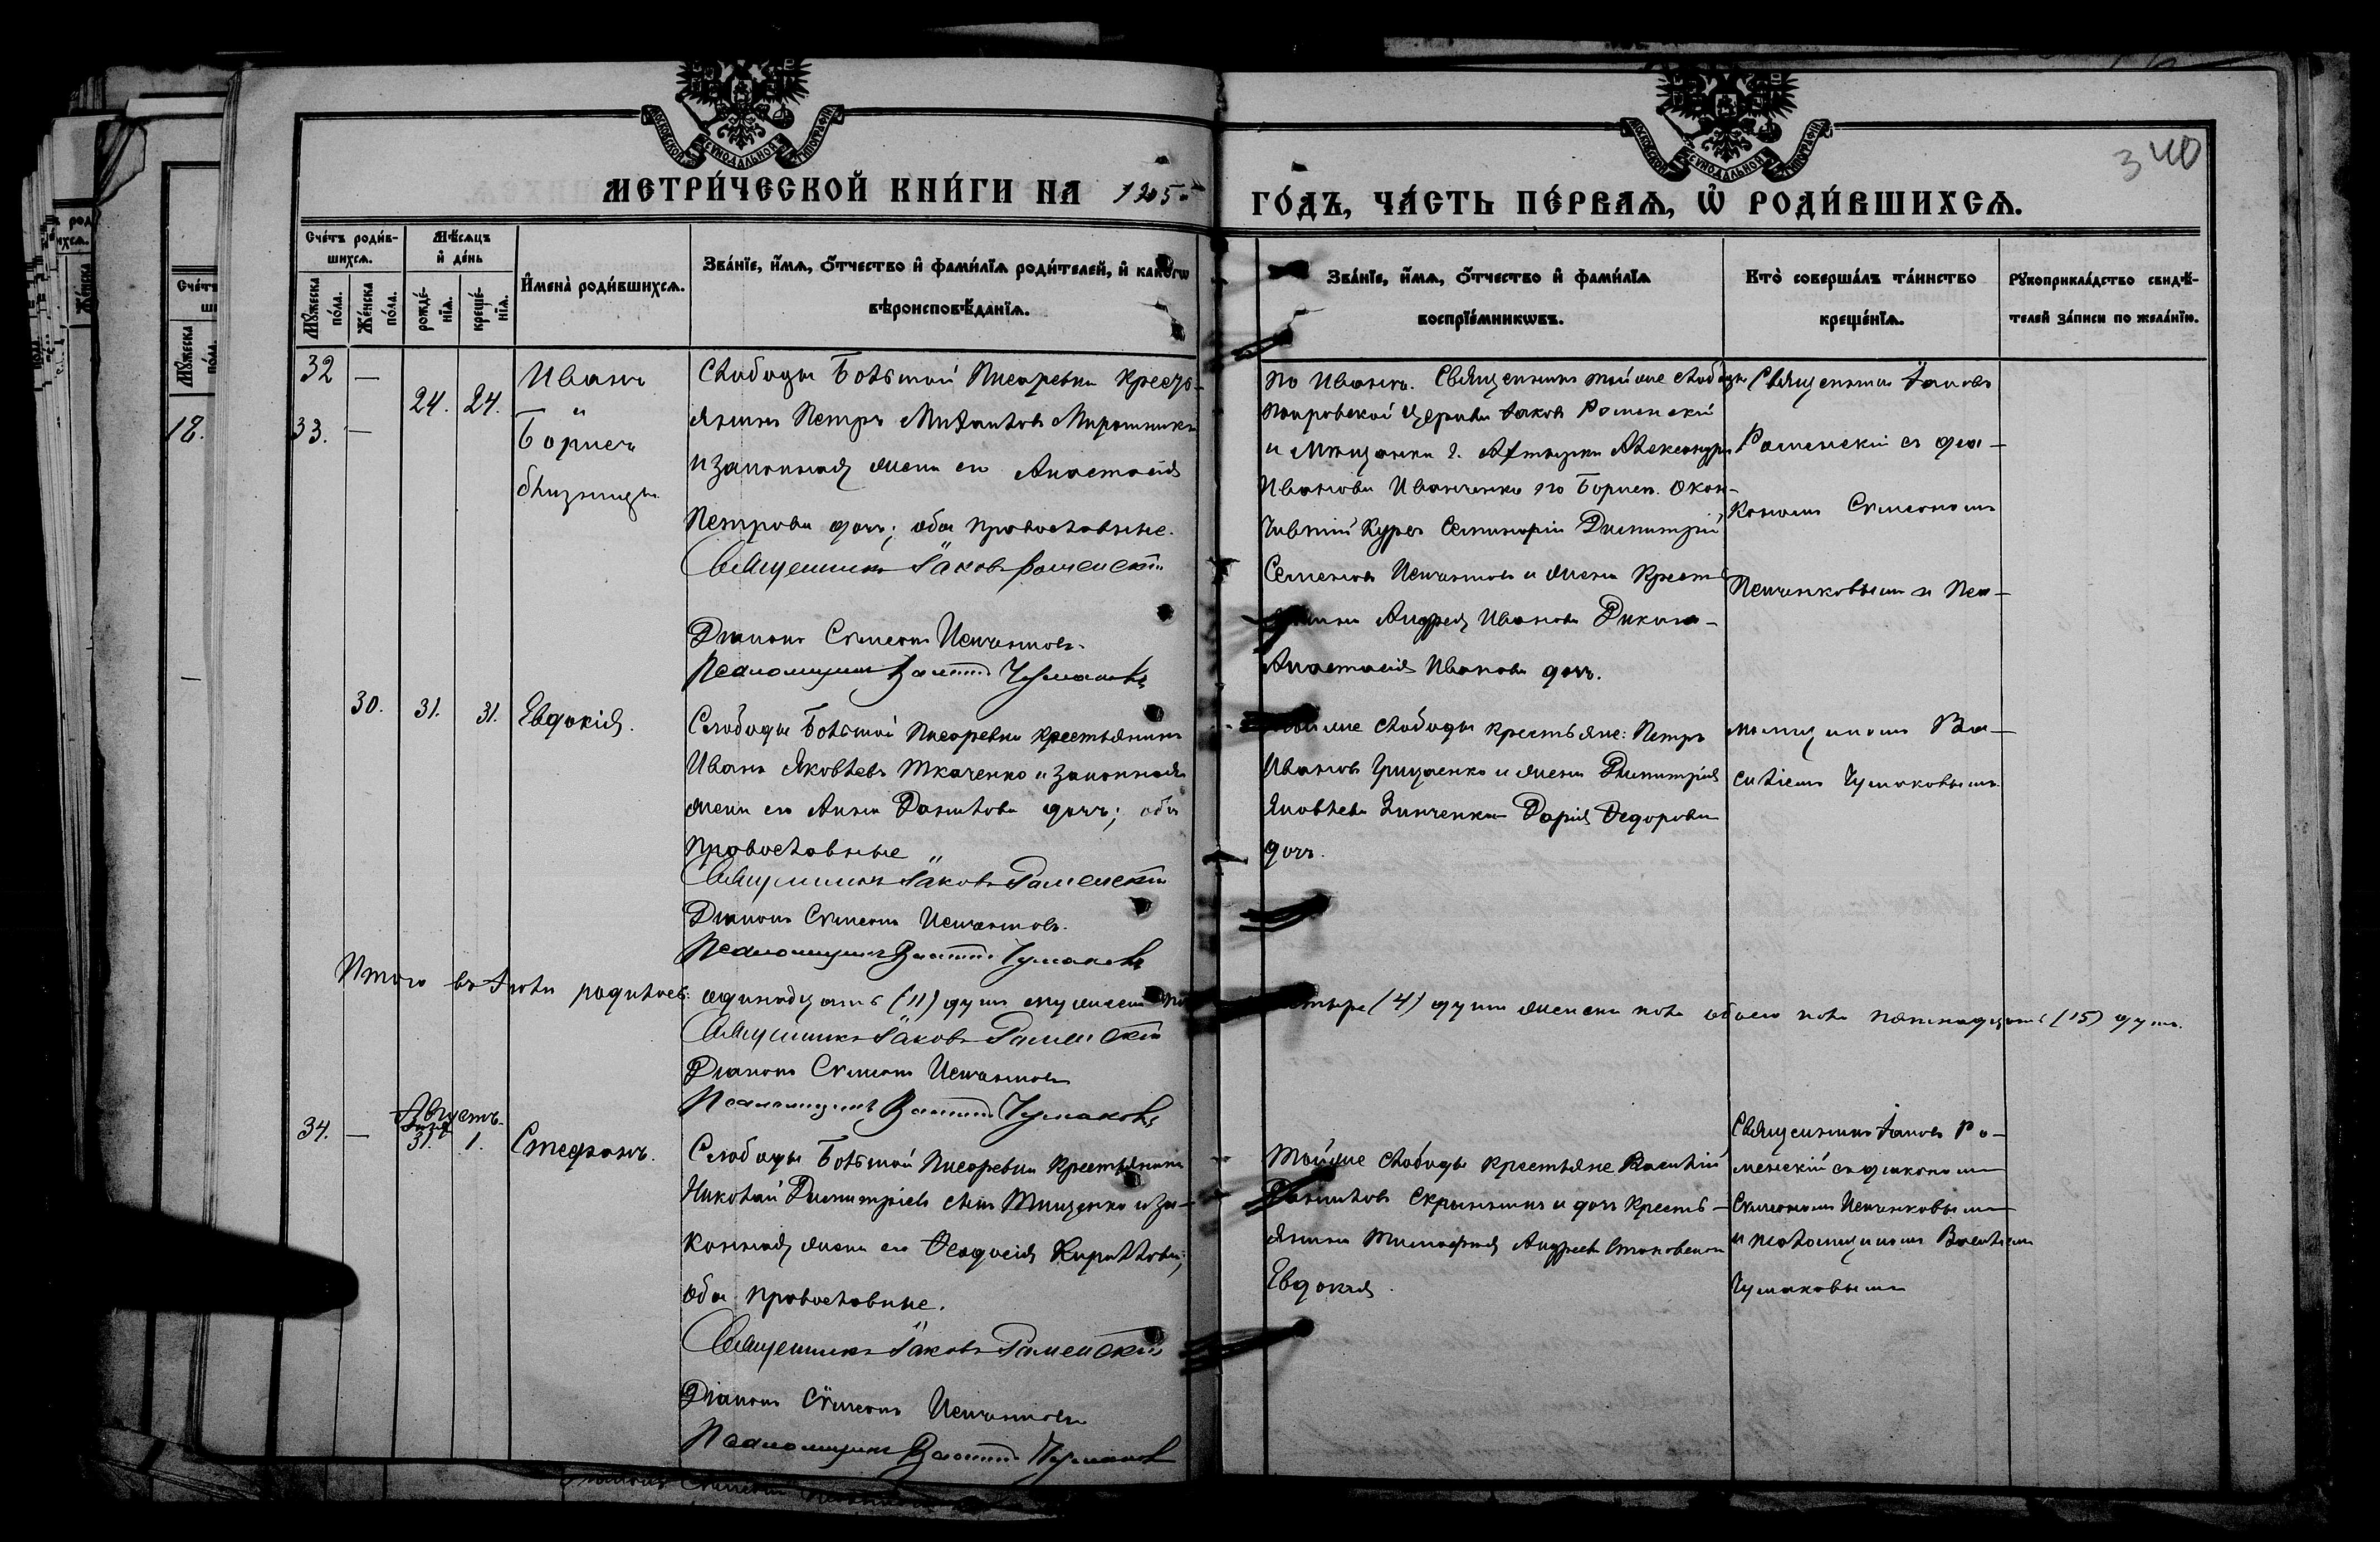 340
МЕТРИ́ЧЕСКОЙ КНИ́ГИ НА 1905 ГО́ДЪ, ЧА́СТЬ ПЕ́РВАЯ, Ѡ҆ РОДИ́ВШИХСЯ.
Сче́тъ роди́в-
шихся.
Мѣ́сяцъ
и҆ де́нь
И҆мена̀ роди́вшихся.
Зва́нїе, и҆́мя, о҆́тчество и҆ фами́лїя роди́телей, и҆ како́гѡ
вѣроисповѣ́данїя.
Зва́нїе, и҆́мя, о҆́тчество и҆ фами́лїя
воспрїе́мникѡвъ.
Кто̀ соверша́лъ та́инство
креще́нїя.
Рꙋкоприкла́дство свидѣ́-
телей за́писи по жела́нїю.
Мꙋжеска
по́ла.
Же́нска
по́ла.
рожде́-
нїя.
креще́-
нїя.
32 —
24. 24.
33. —
Иванъ
— и
Борисъ
близнецы
Слободы Большой Писаревки кресть-
янинъ Петръ Михаиловъ Мирошникъ
и законная жена его Анастасія
Петрова дочь; оба православные.
Священникъ Іаковъ Раменскій
Діаконъ Сѵмеонъ Исичинковъ
Псаломщикъ Василій Чумаковъ
по Иванѣ. Священникъ той же слободы
Покровской церкви Іаковъ Раменскій
и мѣщанка г. Ахтырки Александра
Иванова Иванченко по Борисѣ. Окон-
чившій курсъ Семинаріи Димитрій
Семеновъ и жена кресть-
янина Андрея Иванова
Анастасія Иванова дочь.
Священникъ Іаковъ
Раменскій съ діа-
кономъ Сѵмеономъ
и пса-
30. 31. 31. Евдокія.
Слободы Большой Писаревки крестьянинъ
Иванъ Яковлевъ Ткаченко и законная
жена его Анна Данилова дочь; оба
православные
Священникъ Іаковъ Раменскій
Діаконъ Сѵмеонъ
Псаломщикъ Василій Чумаковъ
Той же слободы крестьяне: Петръ
Ивановъ Грищенко и жена Димитрія
Яковлева Зинченка Дарія Ѳедорова
дочь.
ломщикомъ Ва-
силіемъ Чумаковымъ.
Итого въ Іюлѣ родилось: одинадцать (11) душъ мужеска пола четыре (4) души женска пола обоего пола пятнадцать (15) душъ.
Священникъ Іаковъ Раменскій
Діаконъ Сѵмеонъ
Псаломщикъ Василій Чумаковъ
Августъ.
Іюля
34. — 31. 1. Стефанъ.
Слободы Большой Писаревки крестьянинъ
Николай Димитріевъ сынъ Тищенко и за-
конная жена его Ѳеодосія Кириллова;
оба православные.
Священникъ Іаковъ Раменскій
Діаконъ Сѵмеонъ
Псаломщикъ Василій Чумаковъ
Той же слободы крестьяне Василій
Даниловъ Скрынникъ и дочь кресть-
янина Тимофея Андреева
Евдокія.
Священникъ Іаковъ Ра-
менскій съ діакономъ
Сѵмеономъ
и псаломщикомъ Василіемъ
Чумаковымъ
18.